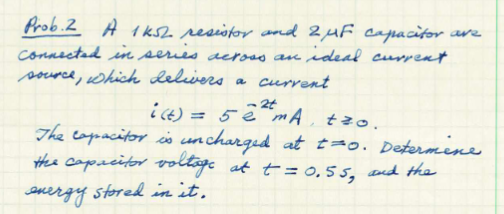 Prob. 2 A 1 kΩ resistor and 2 μF capacitor are
connected in series across an ideal current
source, which delivers a current
i(t) = 5 e^-2t mA, t ≥ 0.
The capacitor is uncharged at t=0. Determine
the capacitor voltage at t = 0.5 s, and the
energy stored in it.